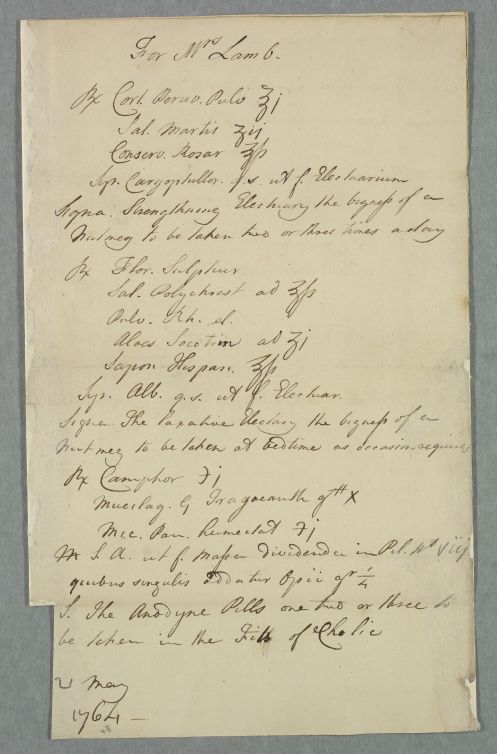 For Mrs Lamb.
Rx Cort. Peruv. Pulv ʒj
Sal. Martis ʒij
Conserv. Rosar ℥ß
Syr. Caryophillor. q.s. ut f. Electuarium
Signa. Strengthning Electuary the bigness of a
Nutmeg to be taken two or three times a day
Rx Flor. Sulphur
Sal. Polychrest ad ʒß
Pulv. Rh. el.
Aloes Socotrin ad ʒj
Sapon Hispan. ℥ß
Syr. Alb. q.s. ut f. Electuar.
Signa The Laxative Electary the bigness of a
Nutmeg to be taken at bedtime as occasion requires
Rx Camphor ℈j
Mucilag. G Tragacanth gtt x
Mic. Pan. humectat ℈j
M S. A. ut f. Massa dividenda in Pil. No viij
quibus singulis addatur Opii gr ¼
S. The Anodyne Pills one two or three to
be taken in the Fitt of Cholic
21 May
1764 —
48